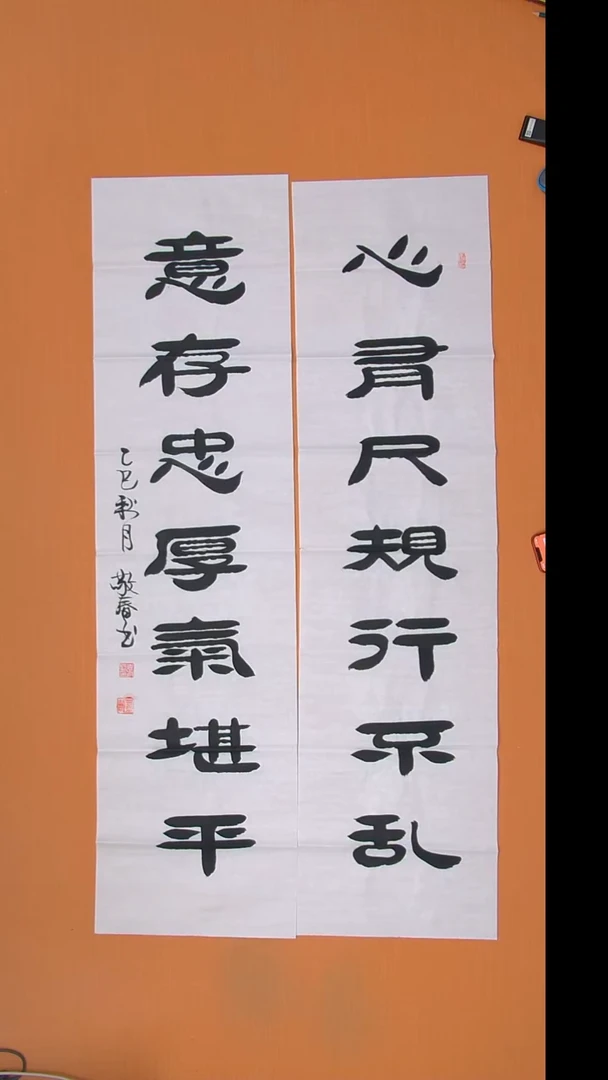 心有尺規行不乱
意存忠厚氣堪平
乙巳秋月 敬春书